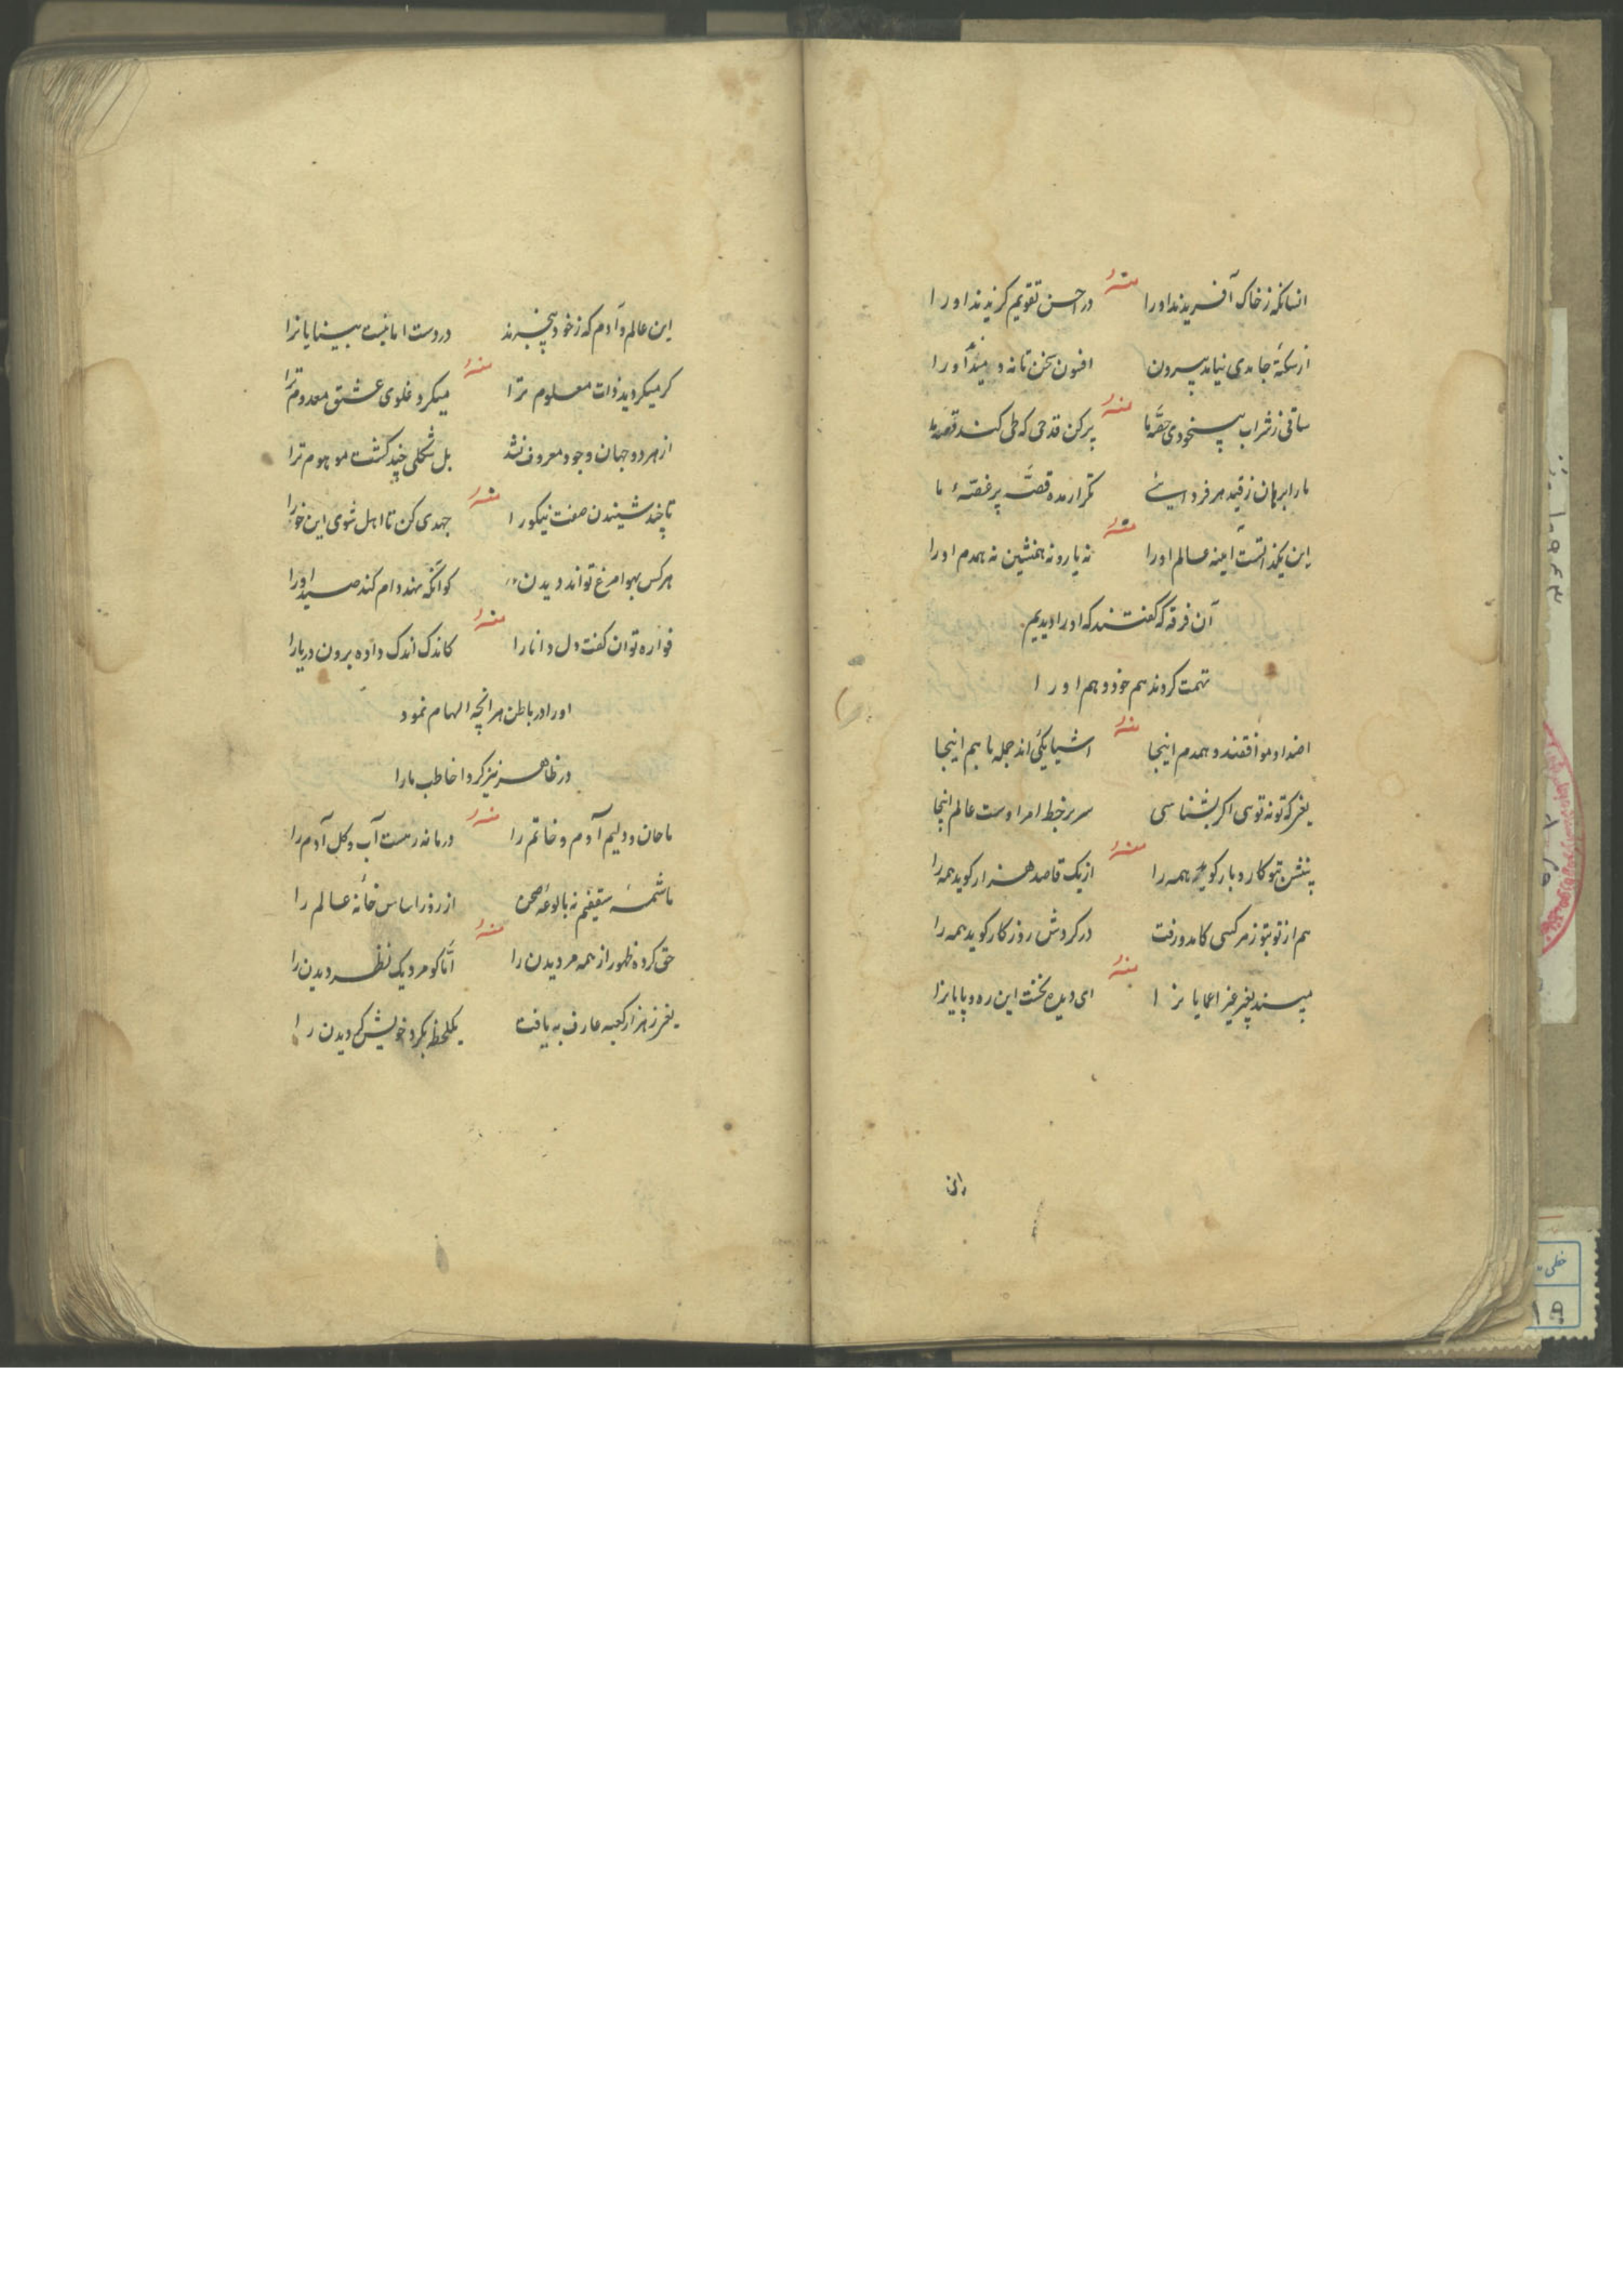 انسانکه ز خاک آفریدند او را منه در احسن تقویم گزیدند او را
از سکتهٔ جامدی نیامد بیرون افسون سخن تا نه دمیدند او را
ساقی ز شراب بیخودی حصهٔ ما منه پر کن قدحی که طی کند قصهٔ ما
ما را برهان ز قید هر فردایی تکرار مده قصهٔ پر غصهٔ ما
این یکذاتست آینه عالم او را منه نه یار و نه همنشین نه همدم او را
آن فرقه که گفتند که او را دیدیم
تهمت کردند هم خود و هم او را
اضداد موافقند و همدم اینجا منه اشیا یکی‌اند جمله با هم اینجا
مغز که تو نه توسی اگر بشناسی سر بر خط امر اوست عالم اینجا
بنشین تو کار و بار گوید همه را منه از یک قاصد هزار گوید همه را
هم از تو بتو ز هر کسی کامد و رفت در گردش روزگار گوید همه را
منه ای دیده نخست این ره و پایانرا
این عالم و آدم که ز خود بیخبرند در دست امانیست بینایانرا
گر میگردید ذات معلوم ترا منه میکرد غلوی عشق معدوم ترا
از هر دو جهان وجود معروف نشد بل شکلی چند گشت موهوم ترا
تا چند شنیدن صفت نیکو را منه جهدی کن تا اهل شوی این خو را
هر کس بهوا مرغ تواند دیدن کو آنکه نهد دام کند صید او را
فواره توان گفت دل دانا را منه کاندک اندک داده برون دریا را
او را در باطن هر انچه الهام نمود
در ظاهر نیز کرد اخاطب ما را
ما جان و دلیم آدم و خاتم را منه درمانده رهست آب و گل آدم را
ما شمسهٔ سقفیم نه بالوعهٔ صحن از روز اساس خانهٔ عالم را
حق کرده ظهور از همه مر دیدن را منه اما کو مرد یک نظر دیدن را
مغز ز هزار کعبه عارف به یافت یکلحظه بگرد خویش گردیدن را